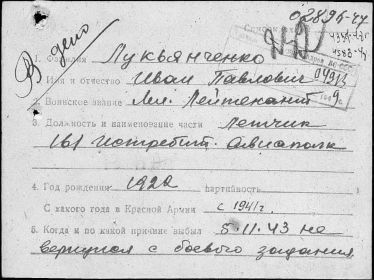 02896-47
В дело
1. Фамилия Лукьянченко
Имя и отчество Иван Павлович
2. Воинское звание Мл. Лейтенант
3. Должность и наименование части Летчик
161 Истребит. Авиаполк
4. Год рождения 1922 партийность
С какого года в Красной Армии с 1941 г.
5. Когда и по какой причине выбыл 5.11.43 не
вернулся с боевого задания